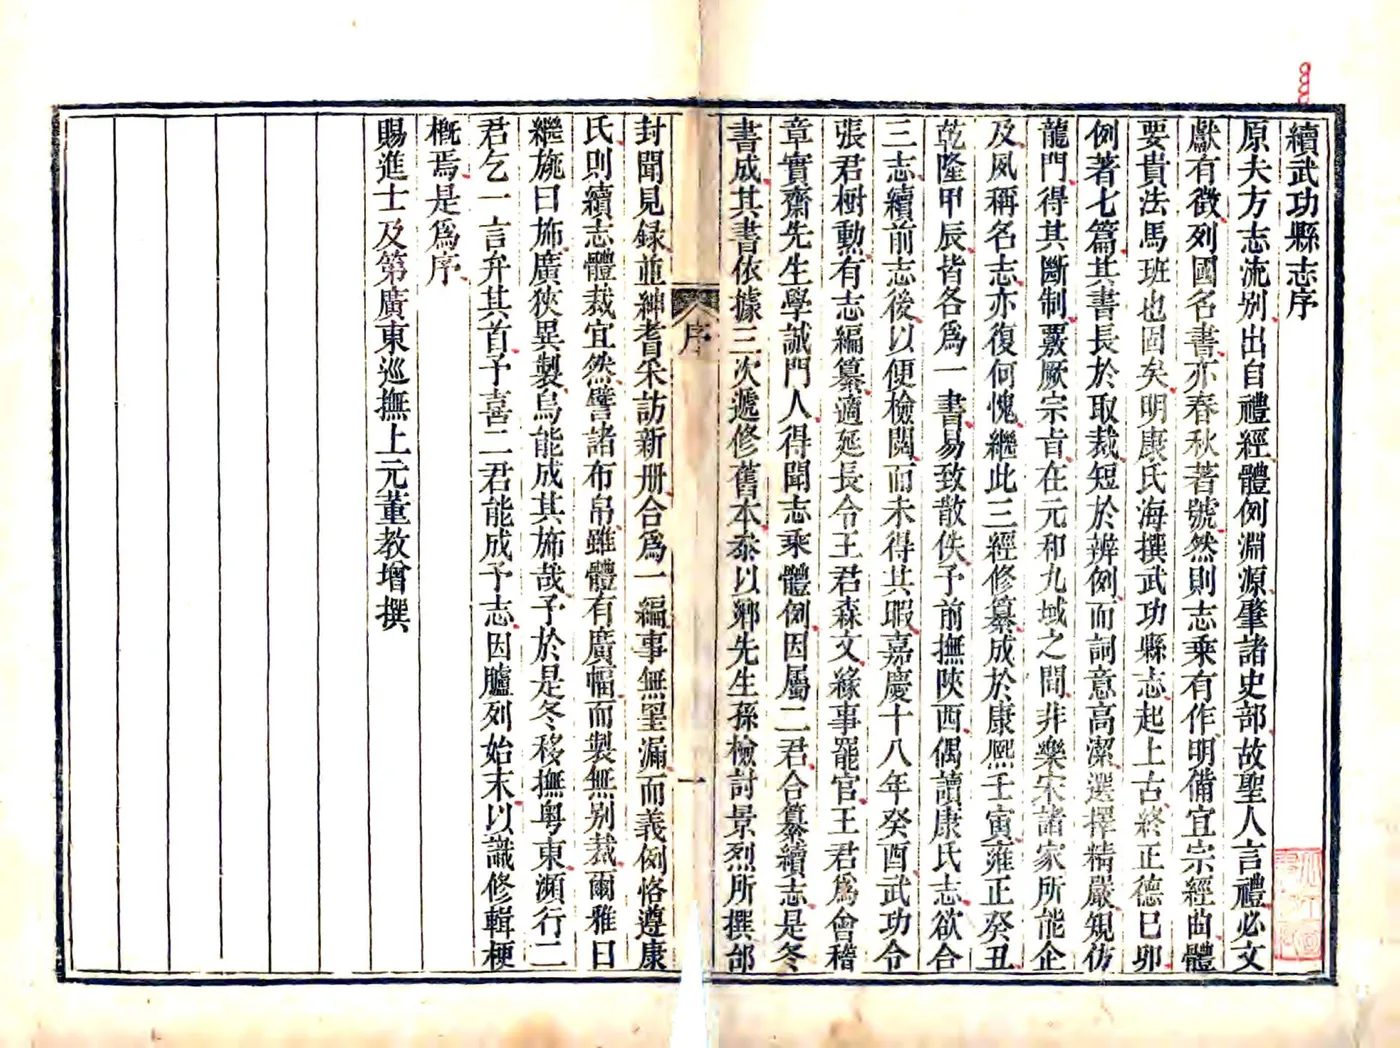 續武功縣志序
原夫方志流別出自禮經體例淵源肇諸史部故聖人言禮必文
獻有徵列國名書亦春秋著號然則志乘有作明備宜宗經曲體
要貴法馬班也固矣明康氏海撰武功縣志起上古終正德巳卯
例著七篇其書長於取裁短於辨例而詞意高潔選擇精嚴規仿
龍門得其斷制覈厥宗旨在元和九域之間非樂宋諸家所能企
及夙稱名志亦復何愧繼此三經修纂成於康熙壬寅雍正癸丑
乾隆甲辰皆各爲一書易致散佚予前撫陝西偶讀康氏志欲合
三志續前志後以便檢閱而未得其暇嘉慶十八年癸酉武功令
張君樹勳有志編纂適延長令王君森文緣事罷官王君爲會稽
章實齋先生學誠門人得聞志乘體例因屬二君合纂續志是冬
書成其書依據三次遞修舊本叅以鄉先生孫檢討景烈所撰邰
封聞見録並紳耆采訪新册合爲一編事無罣漏而義例恪遵康
氏則續志體裁宜然譬諸布帛雖體有廣幅而製無别裁爾雅曰
繼旐曰旆旆廣狹異製烏能成其旆哉予於是冬移撫粵東瀕行二
君乞一言弁其首予喜二君能成予志因臚列始末以識修輯梗
概焉是爲序
賜進士及第廣東巡撫上元董教增撰
序
一